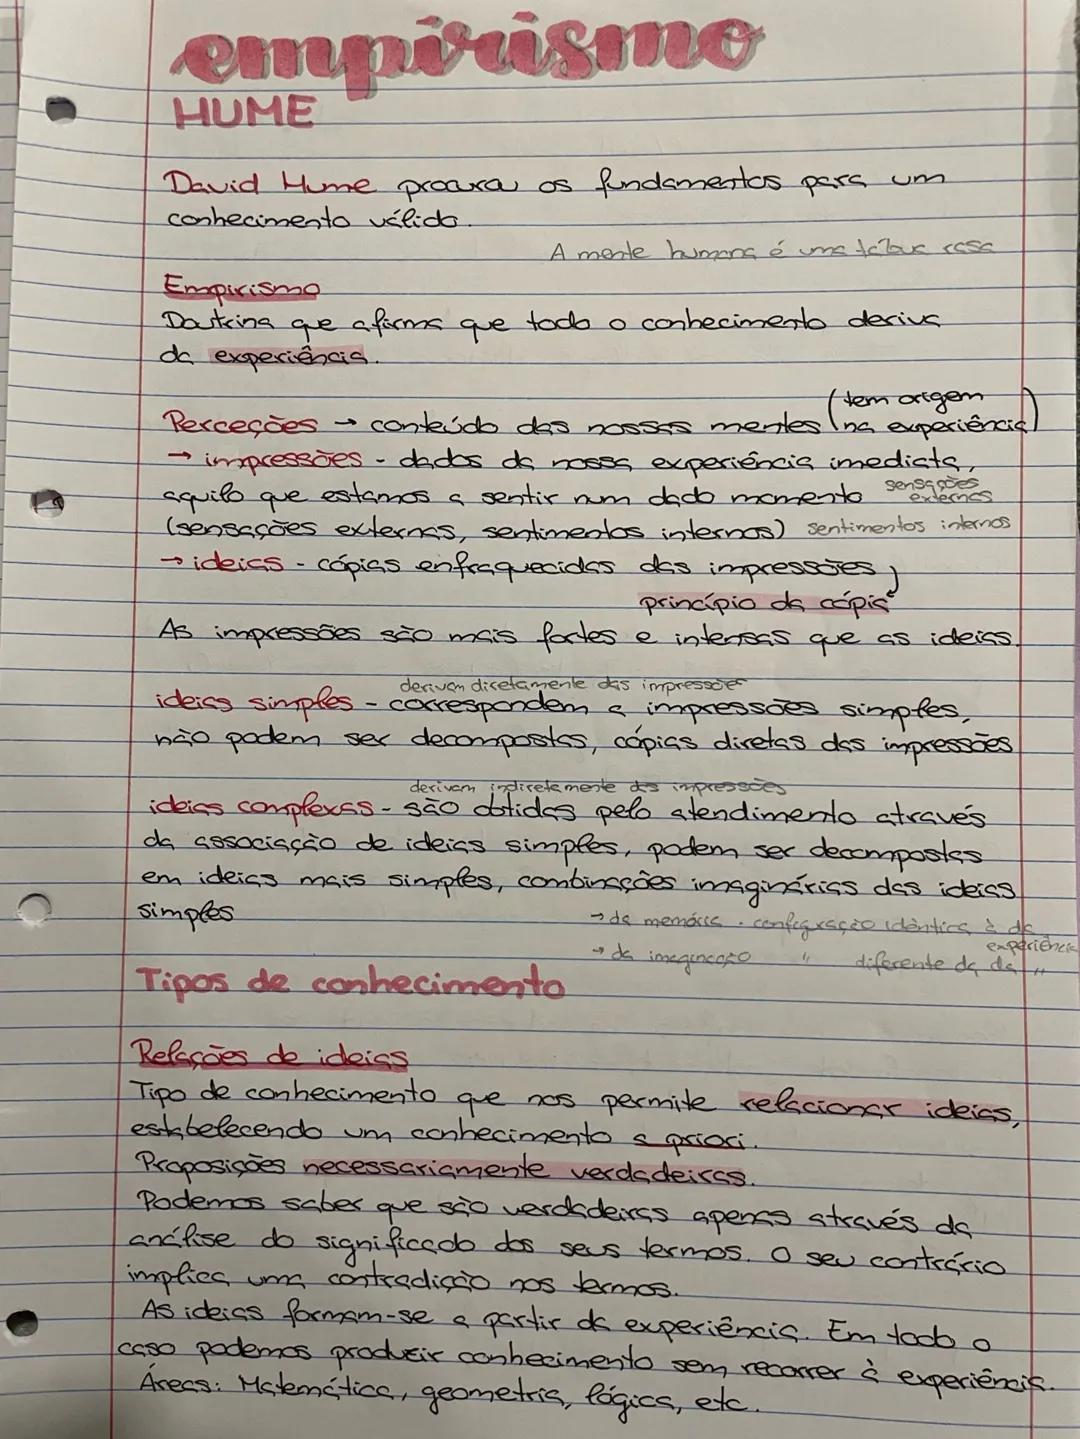 empirismo
HUME
David Hume procura os fundamentos para um
conhecimento válido.
A mente humana é uma tábua rasa
Empirismo
Doutrina que afirma que todo o conhecimento deriva
da experiência.
(tem origem
Perceções → conteúdo das nossas mentes na experiência)
→ impressões - dados da nossa experiência imediata,
aquilo que estamos a sentir num dado momento sensações externas
(sensações externas, sentimentos internos) sentimentos internos
→ ideias - cópias enfraquecidas das impressões
princípio da cópia
As impressões são mais fortes e intensas que as ideias.
derivam diretamente das impressões
ideias simples - correspondem a impressões simples,
não podem ser decompostas, cópias diretas das impressões
derivam indiretamente das impressões
ideias complexas - são obtidas pelo atendimento através
da associação de ideias simples, podem ser decompostas
em ideias mais simples, combinações imaginárias das ideias
simples
→ da memória - configuração idêntica à da experiência
→ da imaginação " diferente da da "
Tipos de conhecimento
Relações de ideias
Tipo de conhecimento que nos permite relacionar ideias,
estabelecendo um conhecimento a priori.
Proposições necessariamente verdadeiras.
Podemos saber que são verdadeiras apenas através da
análise do significado dos seus termos. O seu contrário
implica uma contradição nos termos.
As ideias formam-se a partir da experiência. Em todo o
caso podemos produzir conhecimento sem recorrer à experiência.
Áreas: Matemática, geometria, lógica, etc.